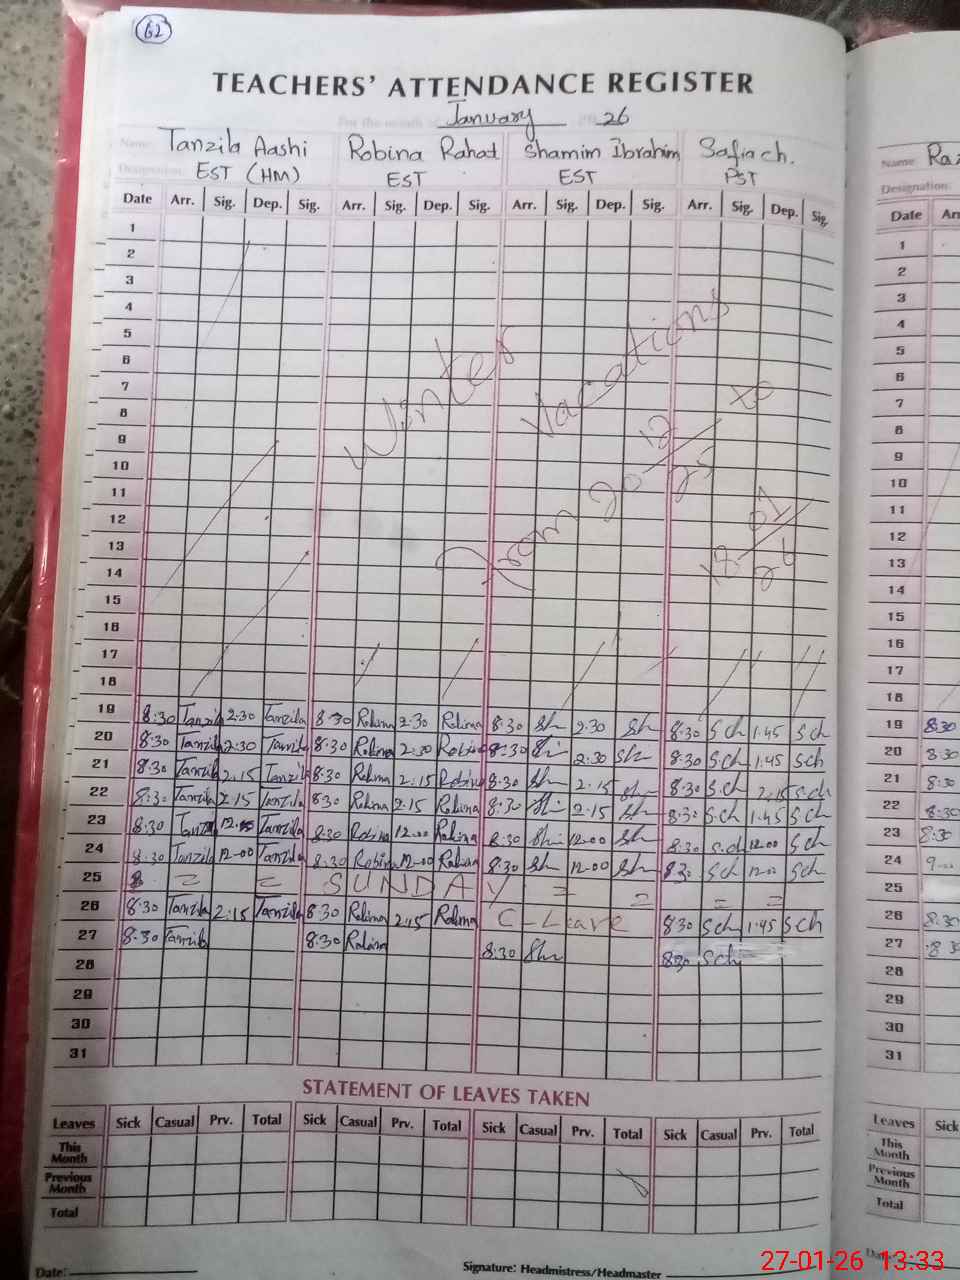 62
TEACHERS' ATTENDANCE REGISTER
For the month of January 26
Name Tanzila Aashi Robina Rahat Shamim Ibrahim Safia ch.
Designation EST (HM) EST EST PST
Date Arr. Sig. Dep. Sig. Arr. Sig. Dep. Sig. Arr. Sig. Dep. Sig. Arr. Sig. Dep. Sig.
1
2
3
4
5
6
7
8
9
10
11
12
13
14
15
16
17
18
Winter Vacations
from 20 12/25 to
18 01/26
19 8:30 Tanzila 2:30 Tanzila 8:30 Robina 2:30 Robina 8:30 Sh 2:30 Sh 8:30 Sch 1:45 Sch
20 8:30 Tanzila 2:30 Tanzila 8:30 Robina 2:30 Robina 8:30 Sh 2:30 Sh 8:30 Sch 1:45 Sch
21 8:30 Tanzila 2:15 Tanzila 8:30 Robina 2:15 Robina 8:30 Sh 2:15 Sh 8:30 Sch 2:15 Sch
22 8:30 Tanzila 2:15 Tanzila 8:30 Robina 2:15 Robina 8:30 Sh 2:15 Sh 8:30 Sch 1:45 Sch
23 8:30 Tanzila 12:00 Tanzila 8:30 Robina 12:00 Robina 8:30 Sh 12:00 Sh 8:30 Sch 12:00 Sch
24 8:30 Tanzila 12:00 Tanzila 8:30 Robina 12:00 Robina 8:30 Sh 12:00 Sh 8:30 Sch 12:00 Sch
25 = = SUNDAY = = = =
26 8:30 Tanzila 2:15 Tanzila 8:30 Robina 2:15 Robina C-Leave 8:30 Sch 1:45 Sch
27 8:30 Tanzila 8:30 Robina 8:30 Sh 8:30 Sch
28
29
30
31
STATEMENT OF LEAVES TAKEN
Leaves Sick Casual Prv. Total Sick Casual Prv. Total Sick Casual Prv. Total Sick Casual Prv. Total
This Month
Previous Month
Total
Date: Signature: Headmistress/Headmaster
Name Raz
Designation
Date Arr
1
2
3
4
5
6
7
8
9
10
11
12
13
14
15
16
17
18
19 8:30
20 8:30
21 8:30
22 8:30
23 8:30
24 9-00
25
26 8:30
27 8:30
28
29
30
31
Leaves Sick
This Month
Previous Month
Total
Date:
27-01-26 13:33